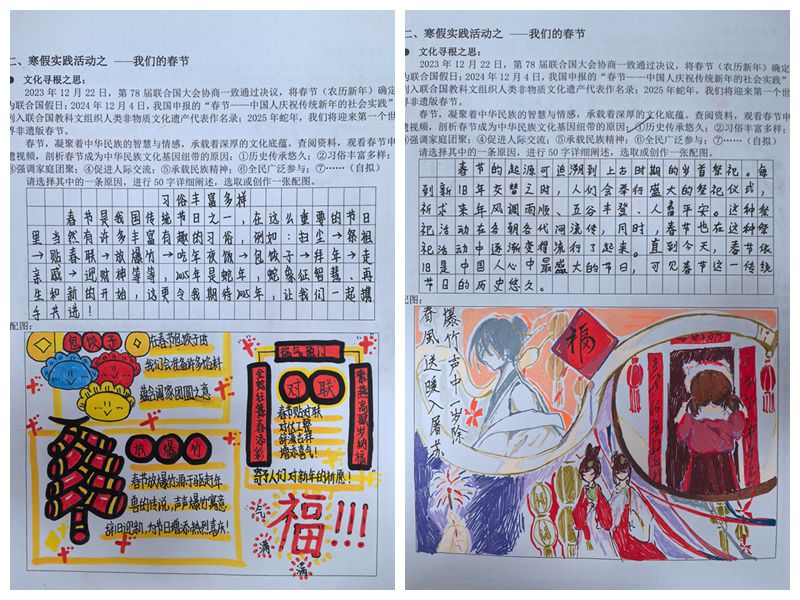 二、寒假实践活动之 ——我们的春节
● 文化寻根之思：
2023 年 12 月 22 日，第 78 届联合国大会协商一致通过决议，将春节（农历新年）确定
为联合国假日；2024 年 12 月 4 日，我国申报的“春节——中国人庆祝传统新年的社会实践”
列入联合国教科文组织人类非物质文化遗产代表作名录；2025 年蛇年，我们将迎来第一个世
界非遗版春节。
春节，凝聚着中华民族的智慧与情感，承载着深厚的文化底蕴。查阅资料，观看春节申
遗视频，剖析春节成为中华民族文化基因纽带的原因：①历史传承悠久；②习俗丰富多样；
③强调家庭团聚；④促进人际交流；⑤承载民族精神；⑥全民广泛参与；⑦……（自拟）
请选择其中的一条原因，进行 50 字详细阐述，选取或创作一张配图。
习俗丰富多样
春节是我国传统节日之一，在这么重要的节日
里当然有许多丰富有趣的习俗，例如：扫尘→祭祖
→贴春联→放爆竹→吃年夜饭→包饺子→拜年→走
亲戚→迎财神等等，2025年是蛇年，蛇象征智慧、再
生和新的开始，这更令我期待2025年，让我们一起携
手共进！
配图：
包饺子
在春节包饺子时
我们会准备许多馅料
蕴含阖家团圆之意
放爆竹
春节放爆竹源于驱赶年
兽的传说，声声爆竹寓意
辞旧迎新，为节日增添热烈喜庆！
对联
春节贴对联
对仗工整
辞藻吉祥
增添喜气！
寄予人们对新年的祈愿！
福！！！
气
满
满
二、寒假实践活动之 ——我们的春节
● 文化寻根之思：
2023 年 12 月 22 日，第 78 届联合国大会协商一致通过决议，将春节（农历新年）确定
为联合国假日；2024 年 12 月 4 日，我国申报的“春节——中国人庆祝传统新年的社会实践”
列入联合国教科文组织人类非物质文化遗产代表作名录；2025 年蛇年，我们将迎来第一个世
界非遗版春节。
春节，凝聚着中华民族的智慧与情感，承载着深厚的文化底蕴。查阅资料，观看春节申
遗视频，剖析春节成为中华民族文化基因纽带的原因：①历史传承悠久；②习俗丰富多样；
③强调家庭团聚；④促进人际交流；⑤承载民族精神；⑥全民广泛参与；⑦……（自拟）
请选择其中的一条原因，进行 50 字详细阐述，选取或创作一张配图。
春节的起源可追溯到上古时期的岁首祭祀。每
到新旧年交替之时，人们会举行盛大的祭祀仪式，
祈求来年风调雨顺、五谷丰登、人畜平安。这种祭
祀活动在各朝各代间流传，同时，春节也在这种祭
祀活动中逐渐变得流行了起来。直到今天，春节依
旧是中国人心中最盛大的节日，可见春节这一传统
节日的历史悠久。
配图：
爆竹声中一岁除
春风送暖入屠苏
福